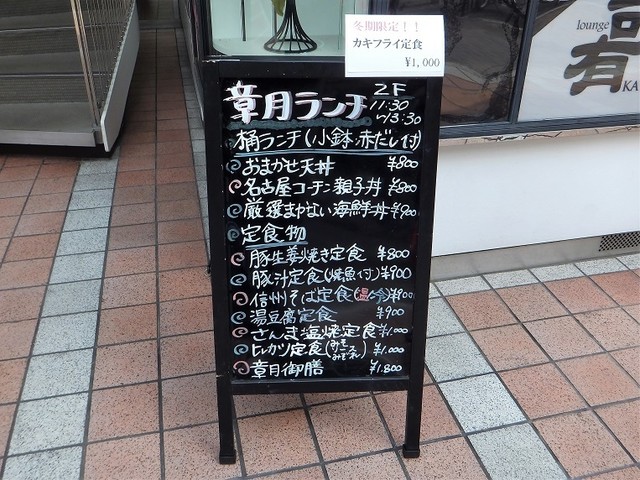 冬期限定!!
カキフライ定食
¥1,000
lounge
有
KA
章月ランチ 2F
11:30
〜13:30
桶ランチ(小鉢・赤だし付)
おまかせ天丼 ¥800
名古屋コーチン親子丼 ¥800
厳選まかない海鮮丼 ¥900
定食物
豚生姜焼き定食 ¥800
豚汁定食(焼魚付) ¥900
信州そば定食(温・冷) ¥900
湯豆腐定食 ¥900
さんま塩焼定食 ¥1,000
ヒレカツ定食(みそ ソース みぞれ) ¥1,000
章月御膳 ¥1,800